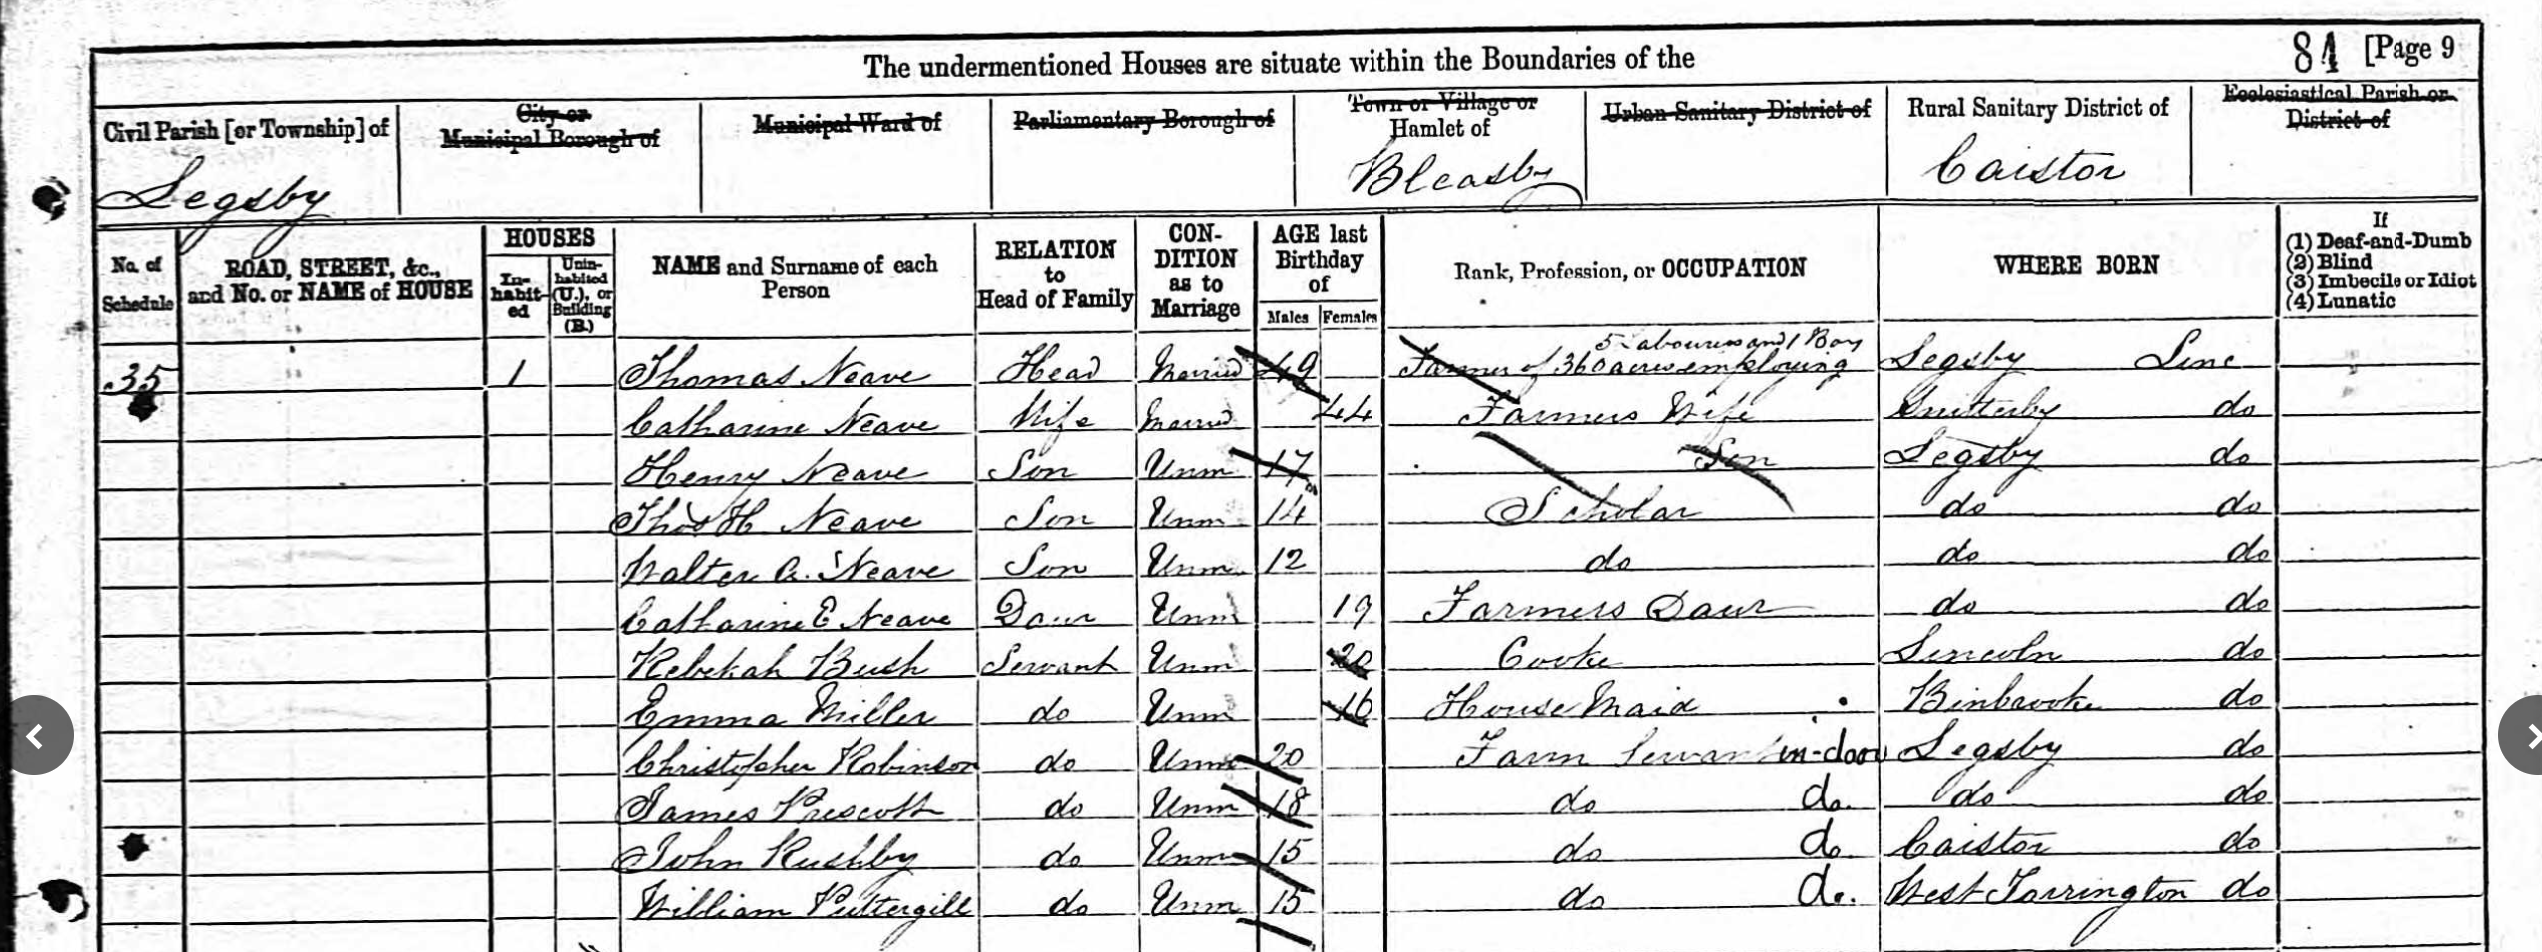 The undermentioned Houses are situate within the Boundaries of the 84 [Page 9
Civil Parish [or Township] of Legsby
City or Municipal Borough of
Municipal Ward of
Parliamentary Borough of
Town or Village or Hamlet of Bleasby
Urban Sanitary District of
Rural Sanitary District of Caistor
Ecclesiastical Parish or District of
No. of Schedule
ROAD, STREET, &c., and No. or NAME of HOUSE
HOUSES
In-habit-ed
Unin-habited (U.), or Building (B.)
NAME and Surname of each Person
RELATION to Head of Family
CON-DITION as to Marriage
AGE last Birthday of
Males Females
Rank, Profession, or OCCUPATION
WHERE BORN
If
(1) Deaf-and-Dumb
(2) Blind
(3) Imbecile or Idiot
(4) Lunatic
35 1 Thomas Neave Head Married 49 Farmer of 360 acres employing 5 Labourers and 1 Boy Legsby Linc
Catharine Neave Wife Married 44 Farmers Wife Snitterby do
Henry Neave Son Unm 17 Son Legsby do
Thos H Neave Son Unm 14 Scholar do do
Walter A. Neave Son Unm 12 do do do
Catharine E Neave Daur Unm 19 Farmers Daur do do
Rebekah Bush Servant Unm 20 Cooke Lincoln do
Emma Miller do Unm 16 House Maid Binbrooke do
Christopher Robinson do Unm 20 Farm Servant in-door Legsby do
James Prescott do Unm 18 do do. do do
John Rushby do Unm 15 do do Caistor do
William Puttergill do Unm 15 do do. West Torrington do